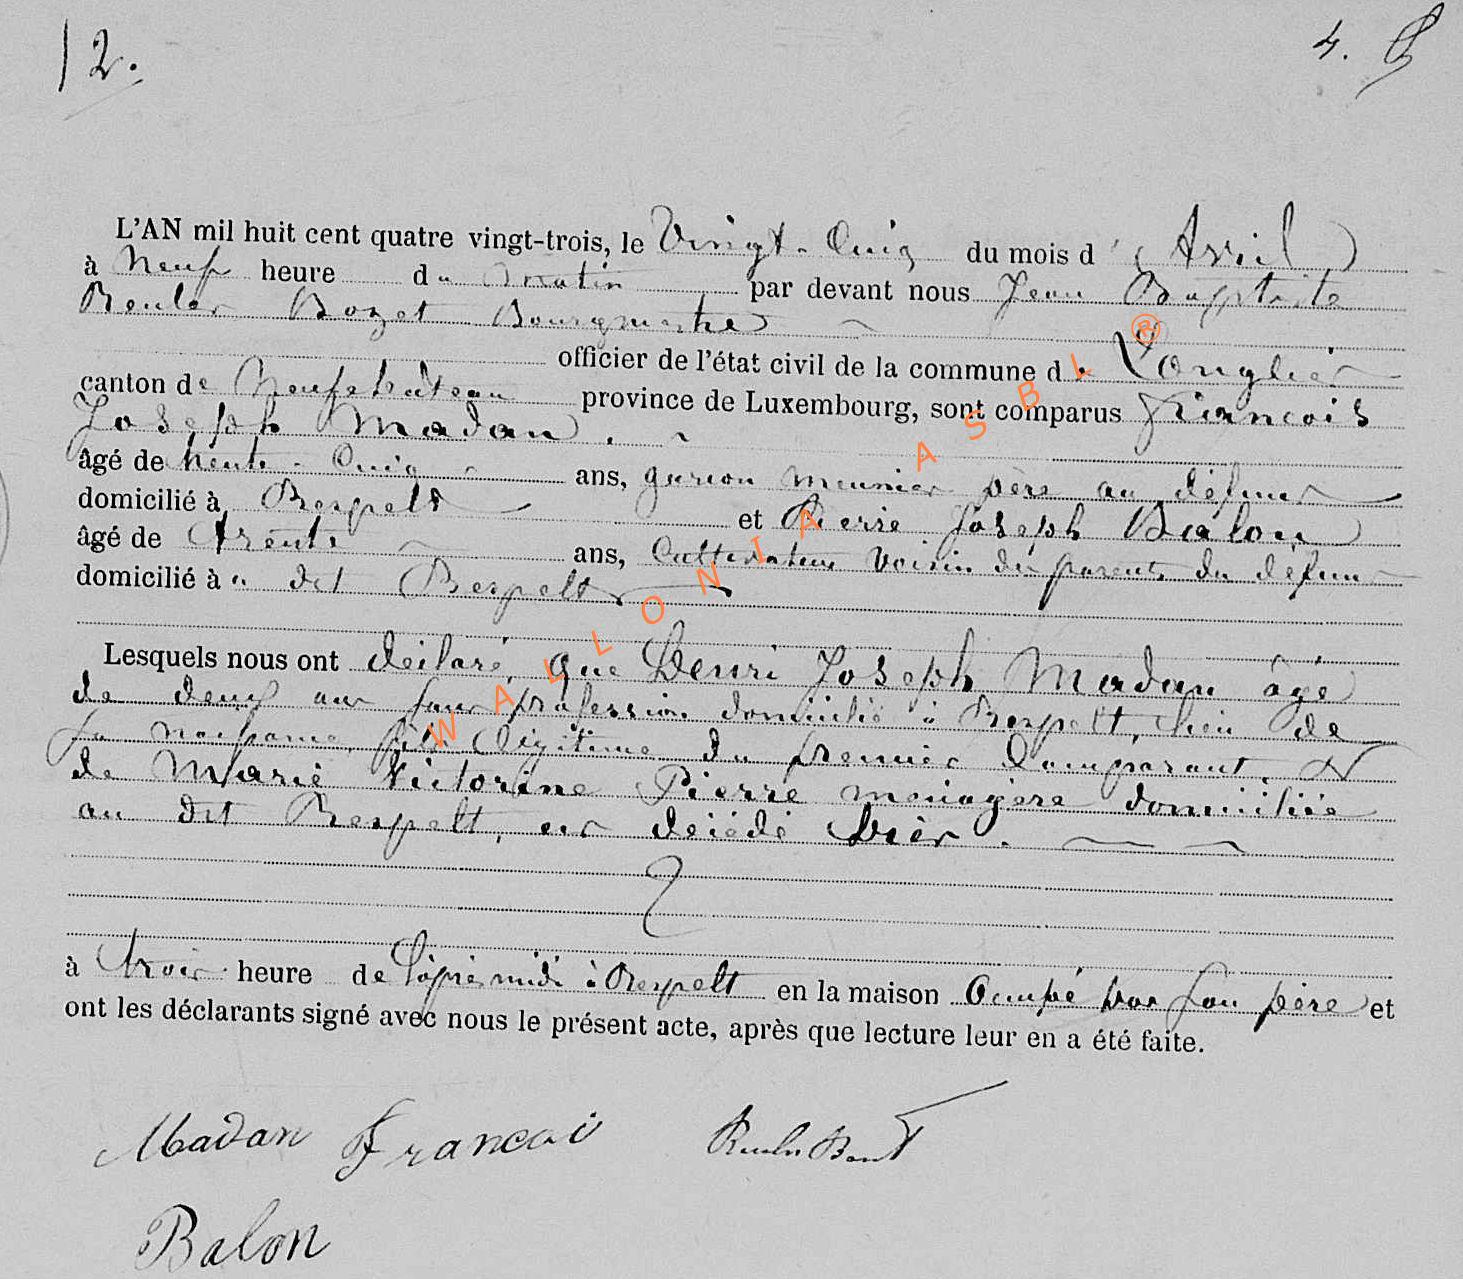 12.
4.
L'AN mil huit cent quatre vingt-trois, le Vingt-Cinq du mois d' Avril
à Neuf heure du matin par devant nous Jean Baptiste
Reuler Bozet Bourgmestre
officier de l'état civil de la commune de Longlier
canton de Neufchâteau province de Luxembourg, sont comparus François
Joseph Madan.
âgé de trente-Cinq ans, garçon meunier père au défunt
domicilié à Respelt et Pierre Joseph Balon
âgé de trente ans, Cultivateur voisin des parents du défunt
domicilié à u dit Respelt
Lesquels nous ont déclaré, que Henri Joseph Madan âgé
de deux ans sans profession domicilié à Respelt, lieu de
sa naissance, fils légitime du premier Comparant, &
de Marie Victorine Pierre ménagère domiciliée
au dit Respelt, est décédé hier.
à trois heure de l'après midi à Respelt en la maison Occupé par son père et
ont les déclarants signé avec nous le présent acte, après que lecture leur en a été faite.
Madan Francoi
Balon
WALLONIA ASBL ®